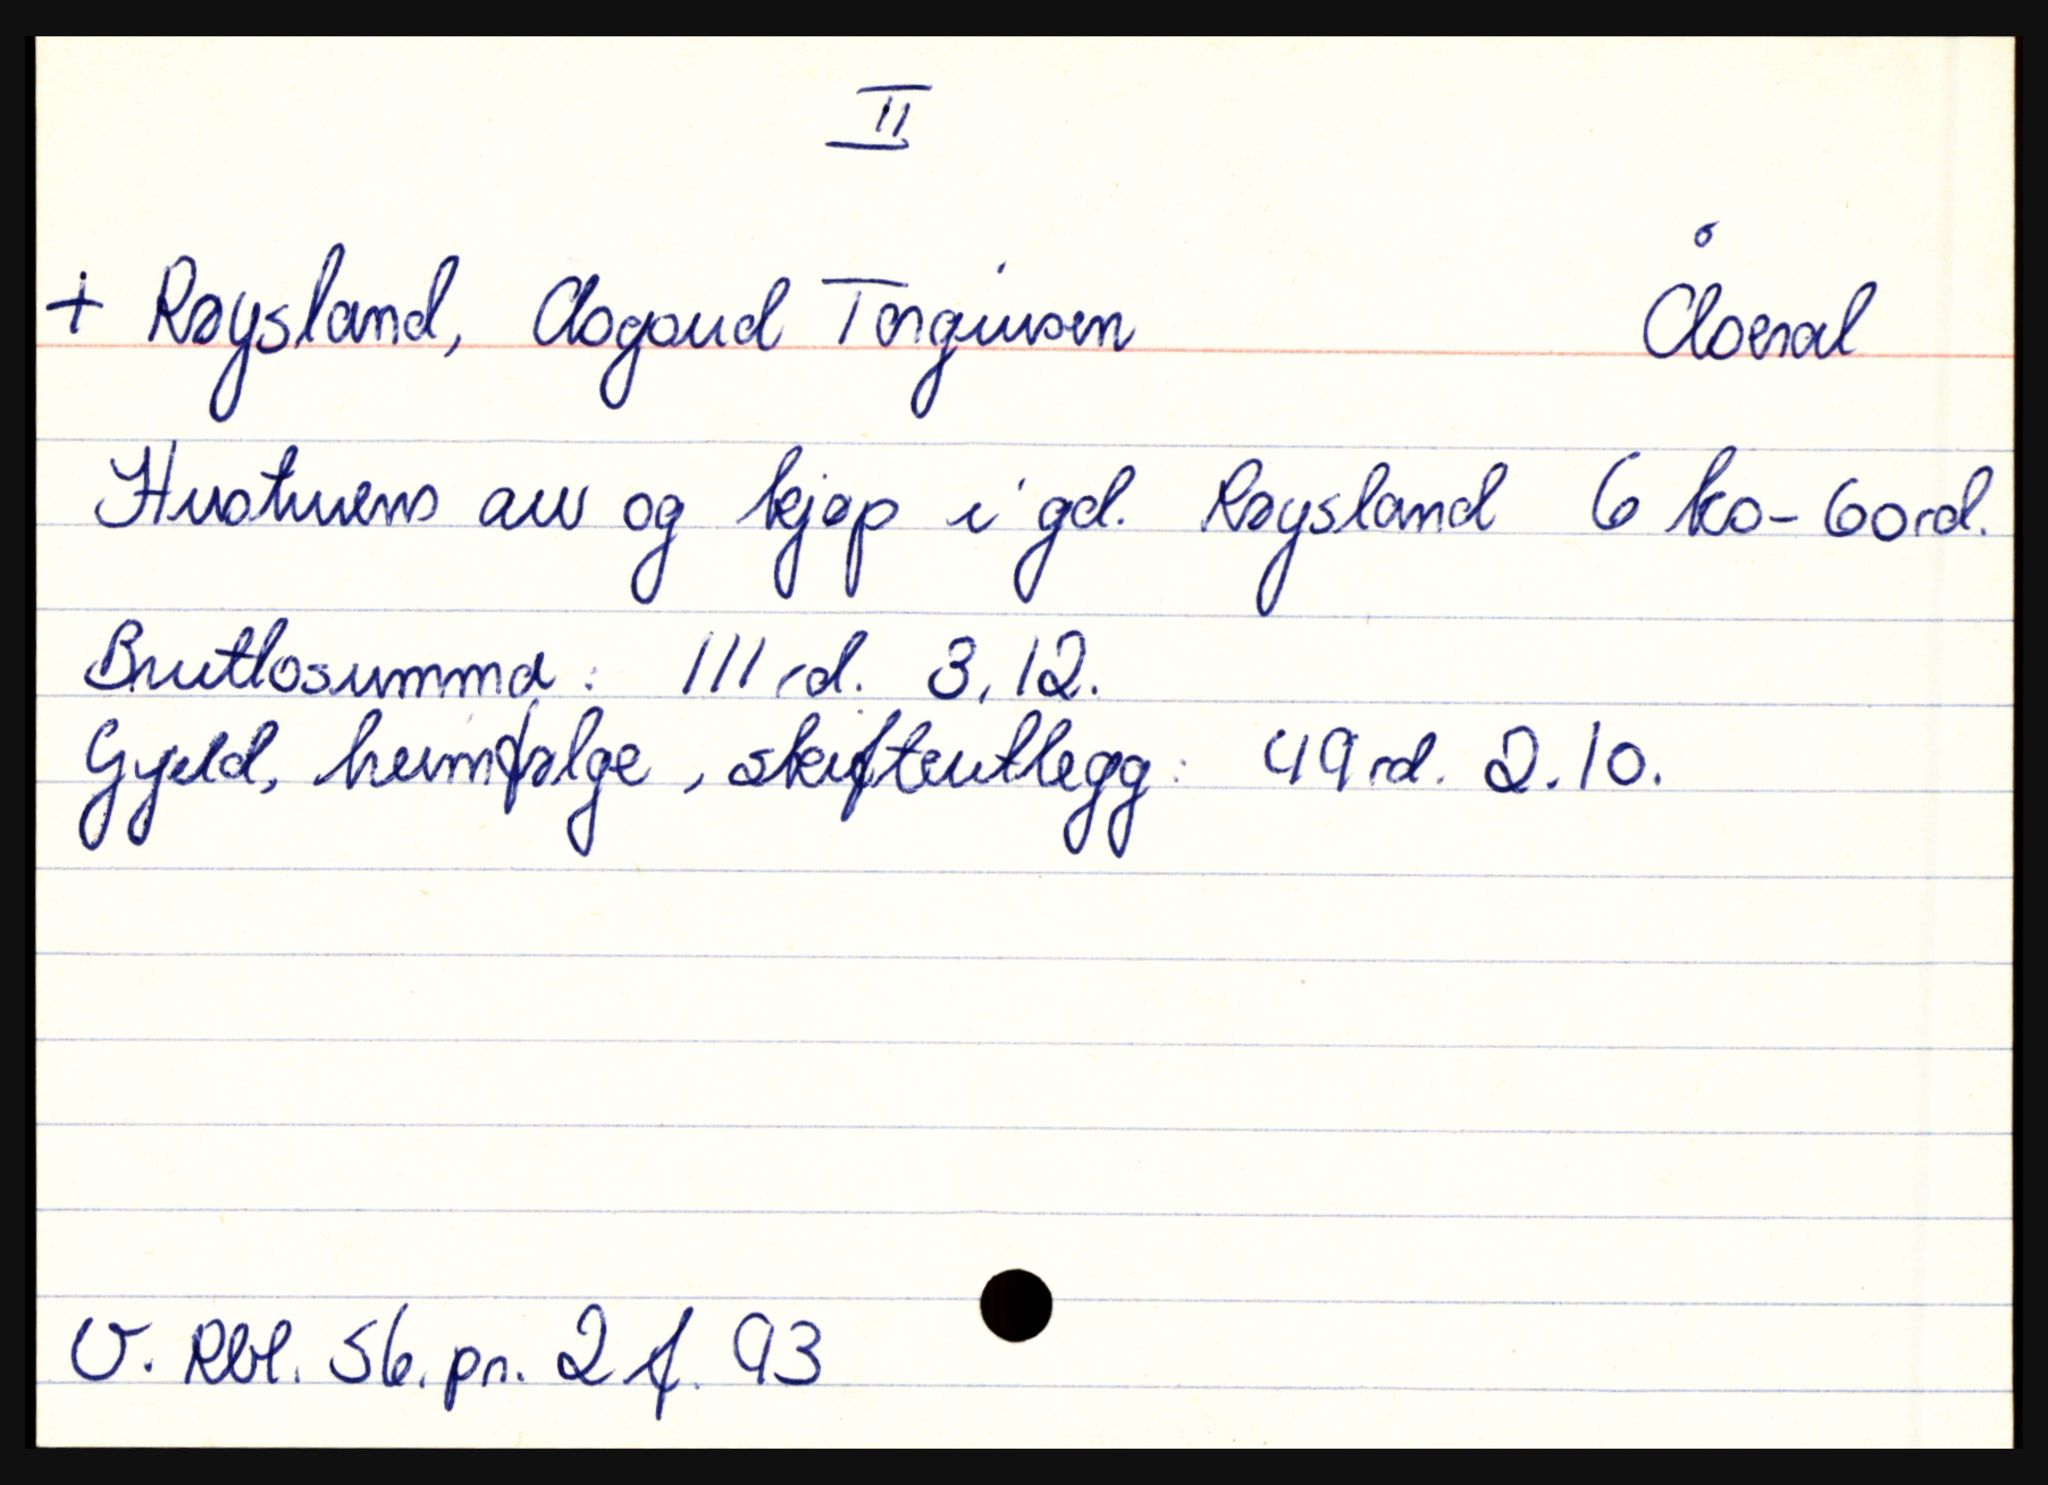 II
+ Røysland, Asgaud Torginsen Åseral
Hustruens arv og kjøp i gd. Røysland 6 ko- 60rd.
Bruttosumma: 111 rd. 3,12.
Gjeld, heimfølge, skifteutlegg: 49 rd. 2.10.
V. Rbl. Sk.pr. 2 f. 93